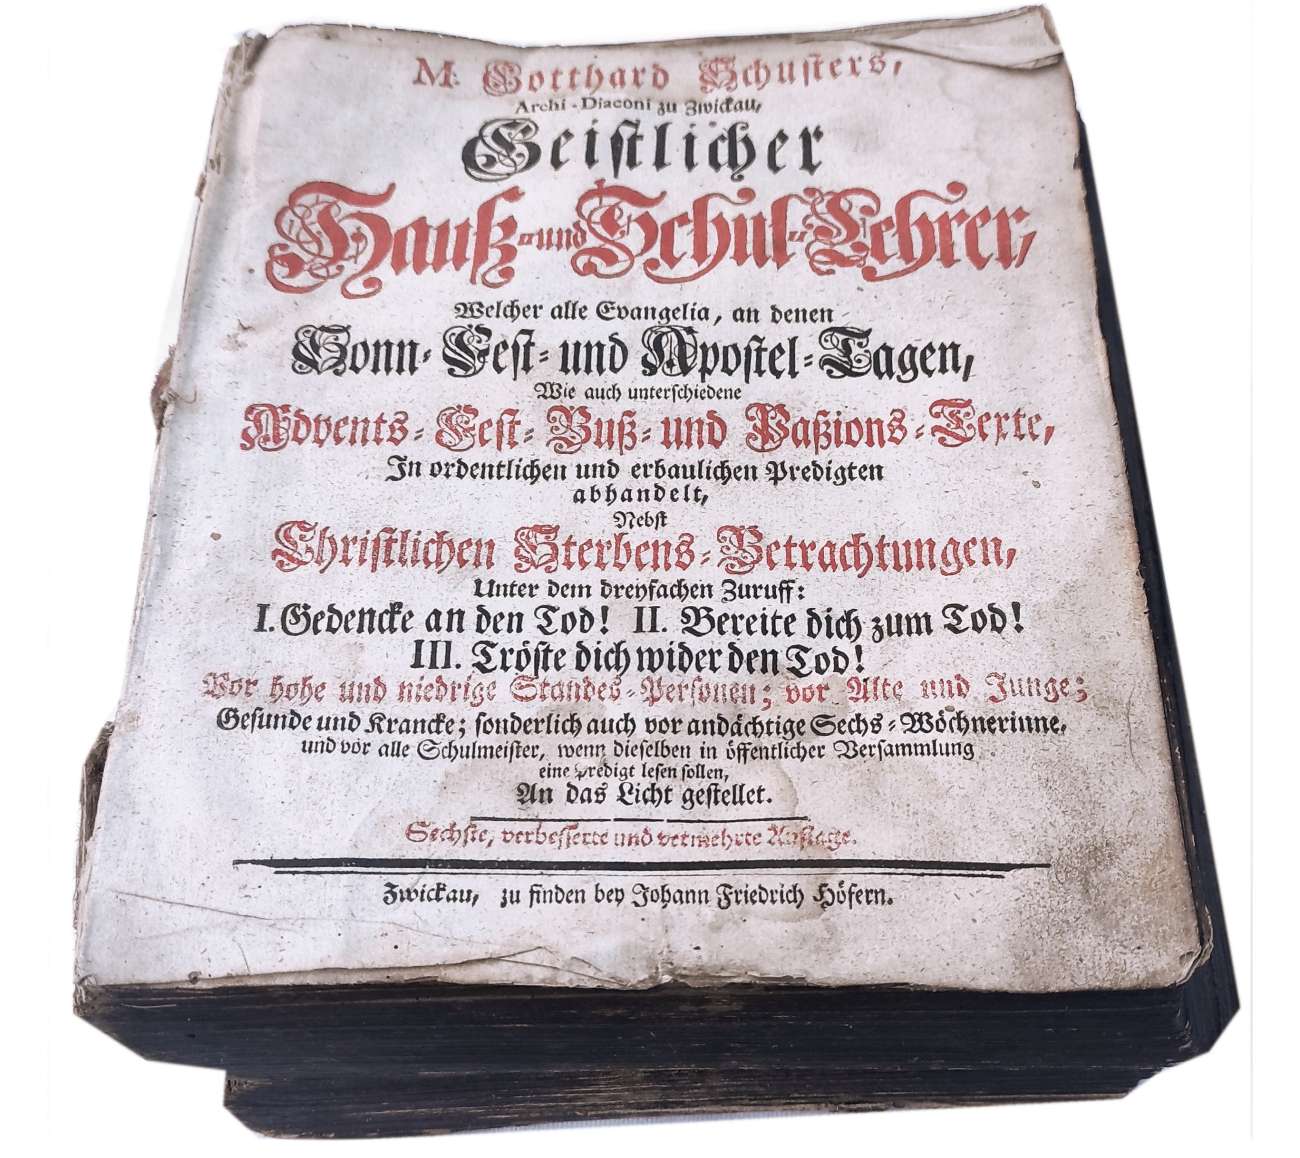 M. Gotthard Schusters,
Archi-Diaconi zu Zwickau,
Geistlicher
Hauß- und Schul-Lehrer,
Welcher alle Evangelia, an denen
Sonn- Fest- und Apostel-Tagen,
Wie auch unterschiedene
Advents- Fest- Buß- und Paßions-Texte,
In ordentlichen und erbaulichen Predigten
abhandelt,
Nebst
Christlichen Sterbens-Betrachtungen,
Unter dem dreyfachen Zuruff:
I. Gedencke an den Tod! II. Bereite dich zum Tod!
III. Tröste dich wider den Tod!
Vor hohe und niedrige Standes-Personen; vor Alte und Junge;
Gesunde und Krancke; sonderlich auch vor andächtige Sechs-Wöchnerinne,
und vor alle Schulmeister, wenn dieselben in öffentlicher Versammlung
eine Predigt lesen sollen,
An das Licht gestellet.
Sechste, verbesserte und vermehrte Auflage.
Zwickau, zu finden bey Johann Friedrich Höfern.